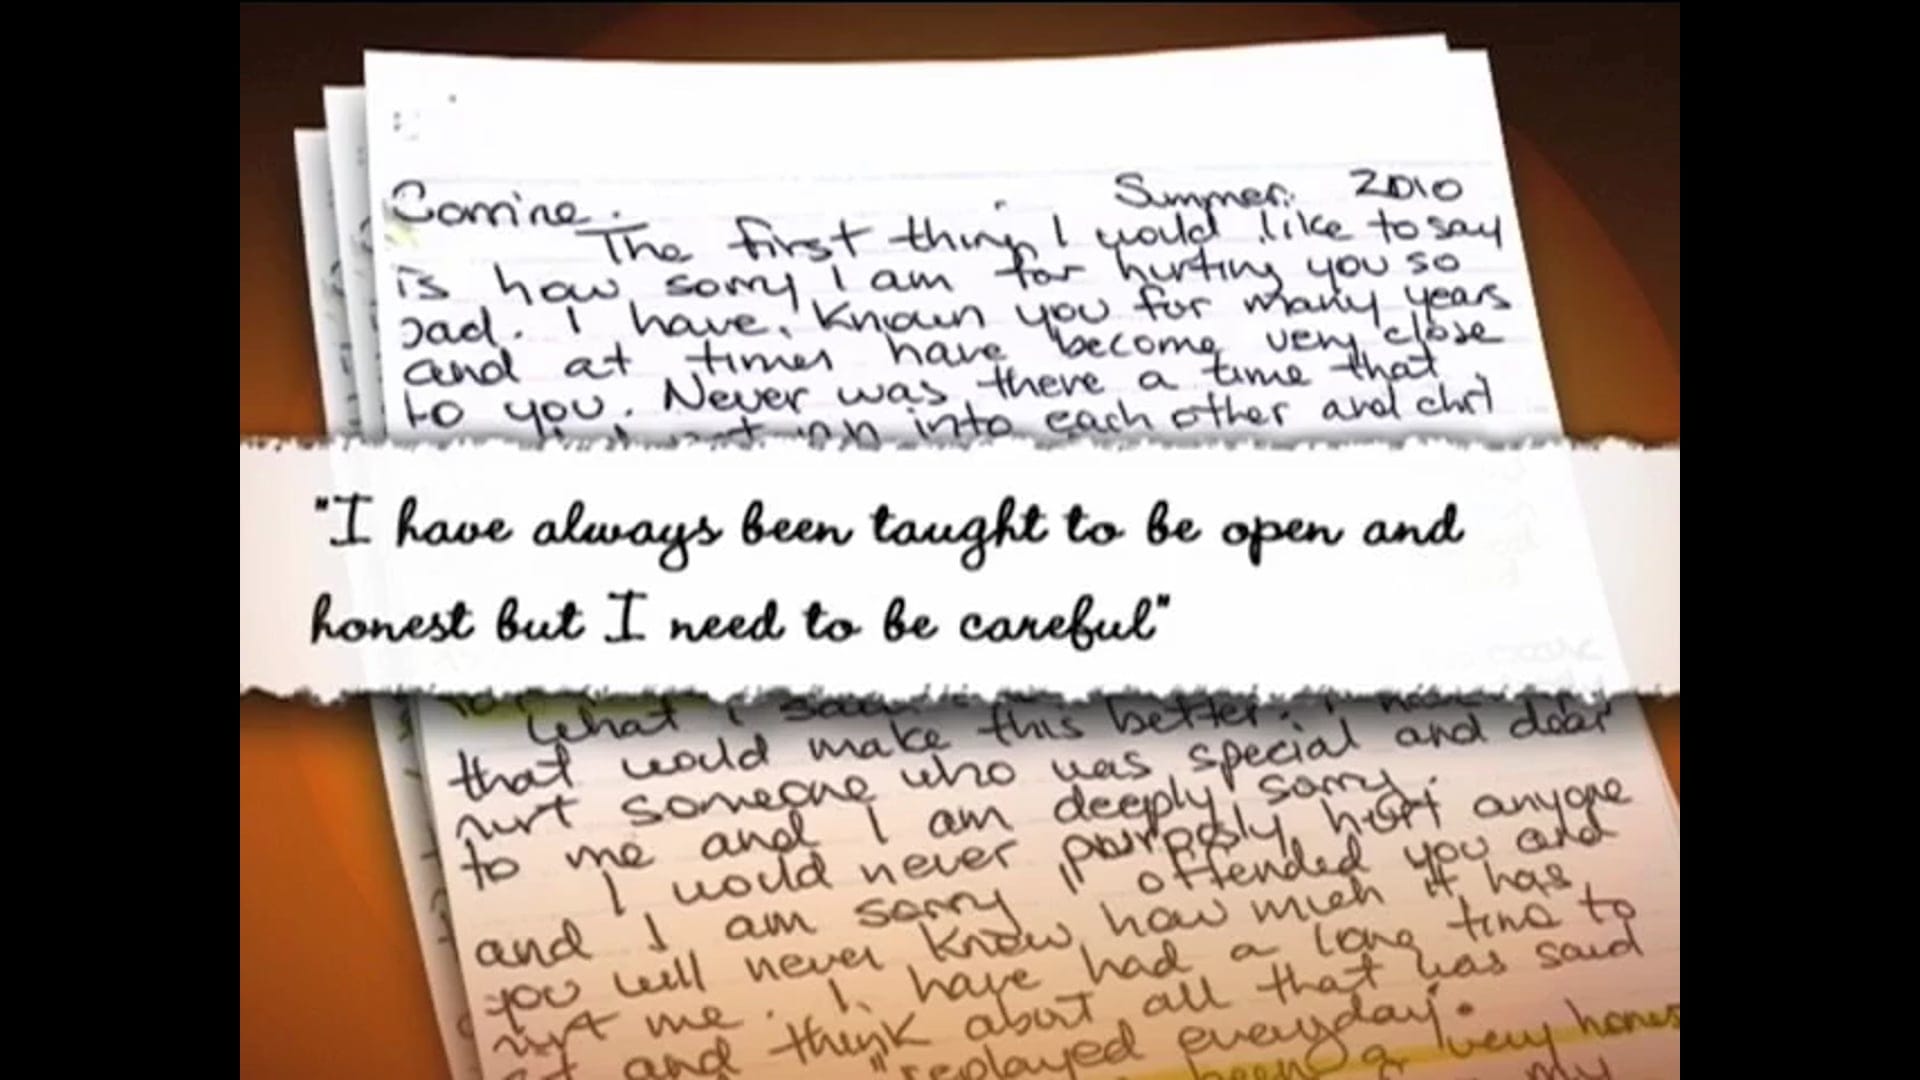 Corrine. Summer. 2010
The first thing I would like to say
is how sorry I am for hurting you so
bad. I have known you for many years
and at times have become very close
to you. Never was there a time that
into each other and
"I have always been taught to be open and
honest but I need to be careful"
What I
that would make this better.
hurt someone who was special and dear
to me and I am deeply sorry.
I would never purposly hurt anyone
and I am sorry I offended you and
you will never know how much it has
hurt me. I have had a long time to
and think about all that was said
"replayed everyday".
been a very hones
my